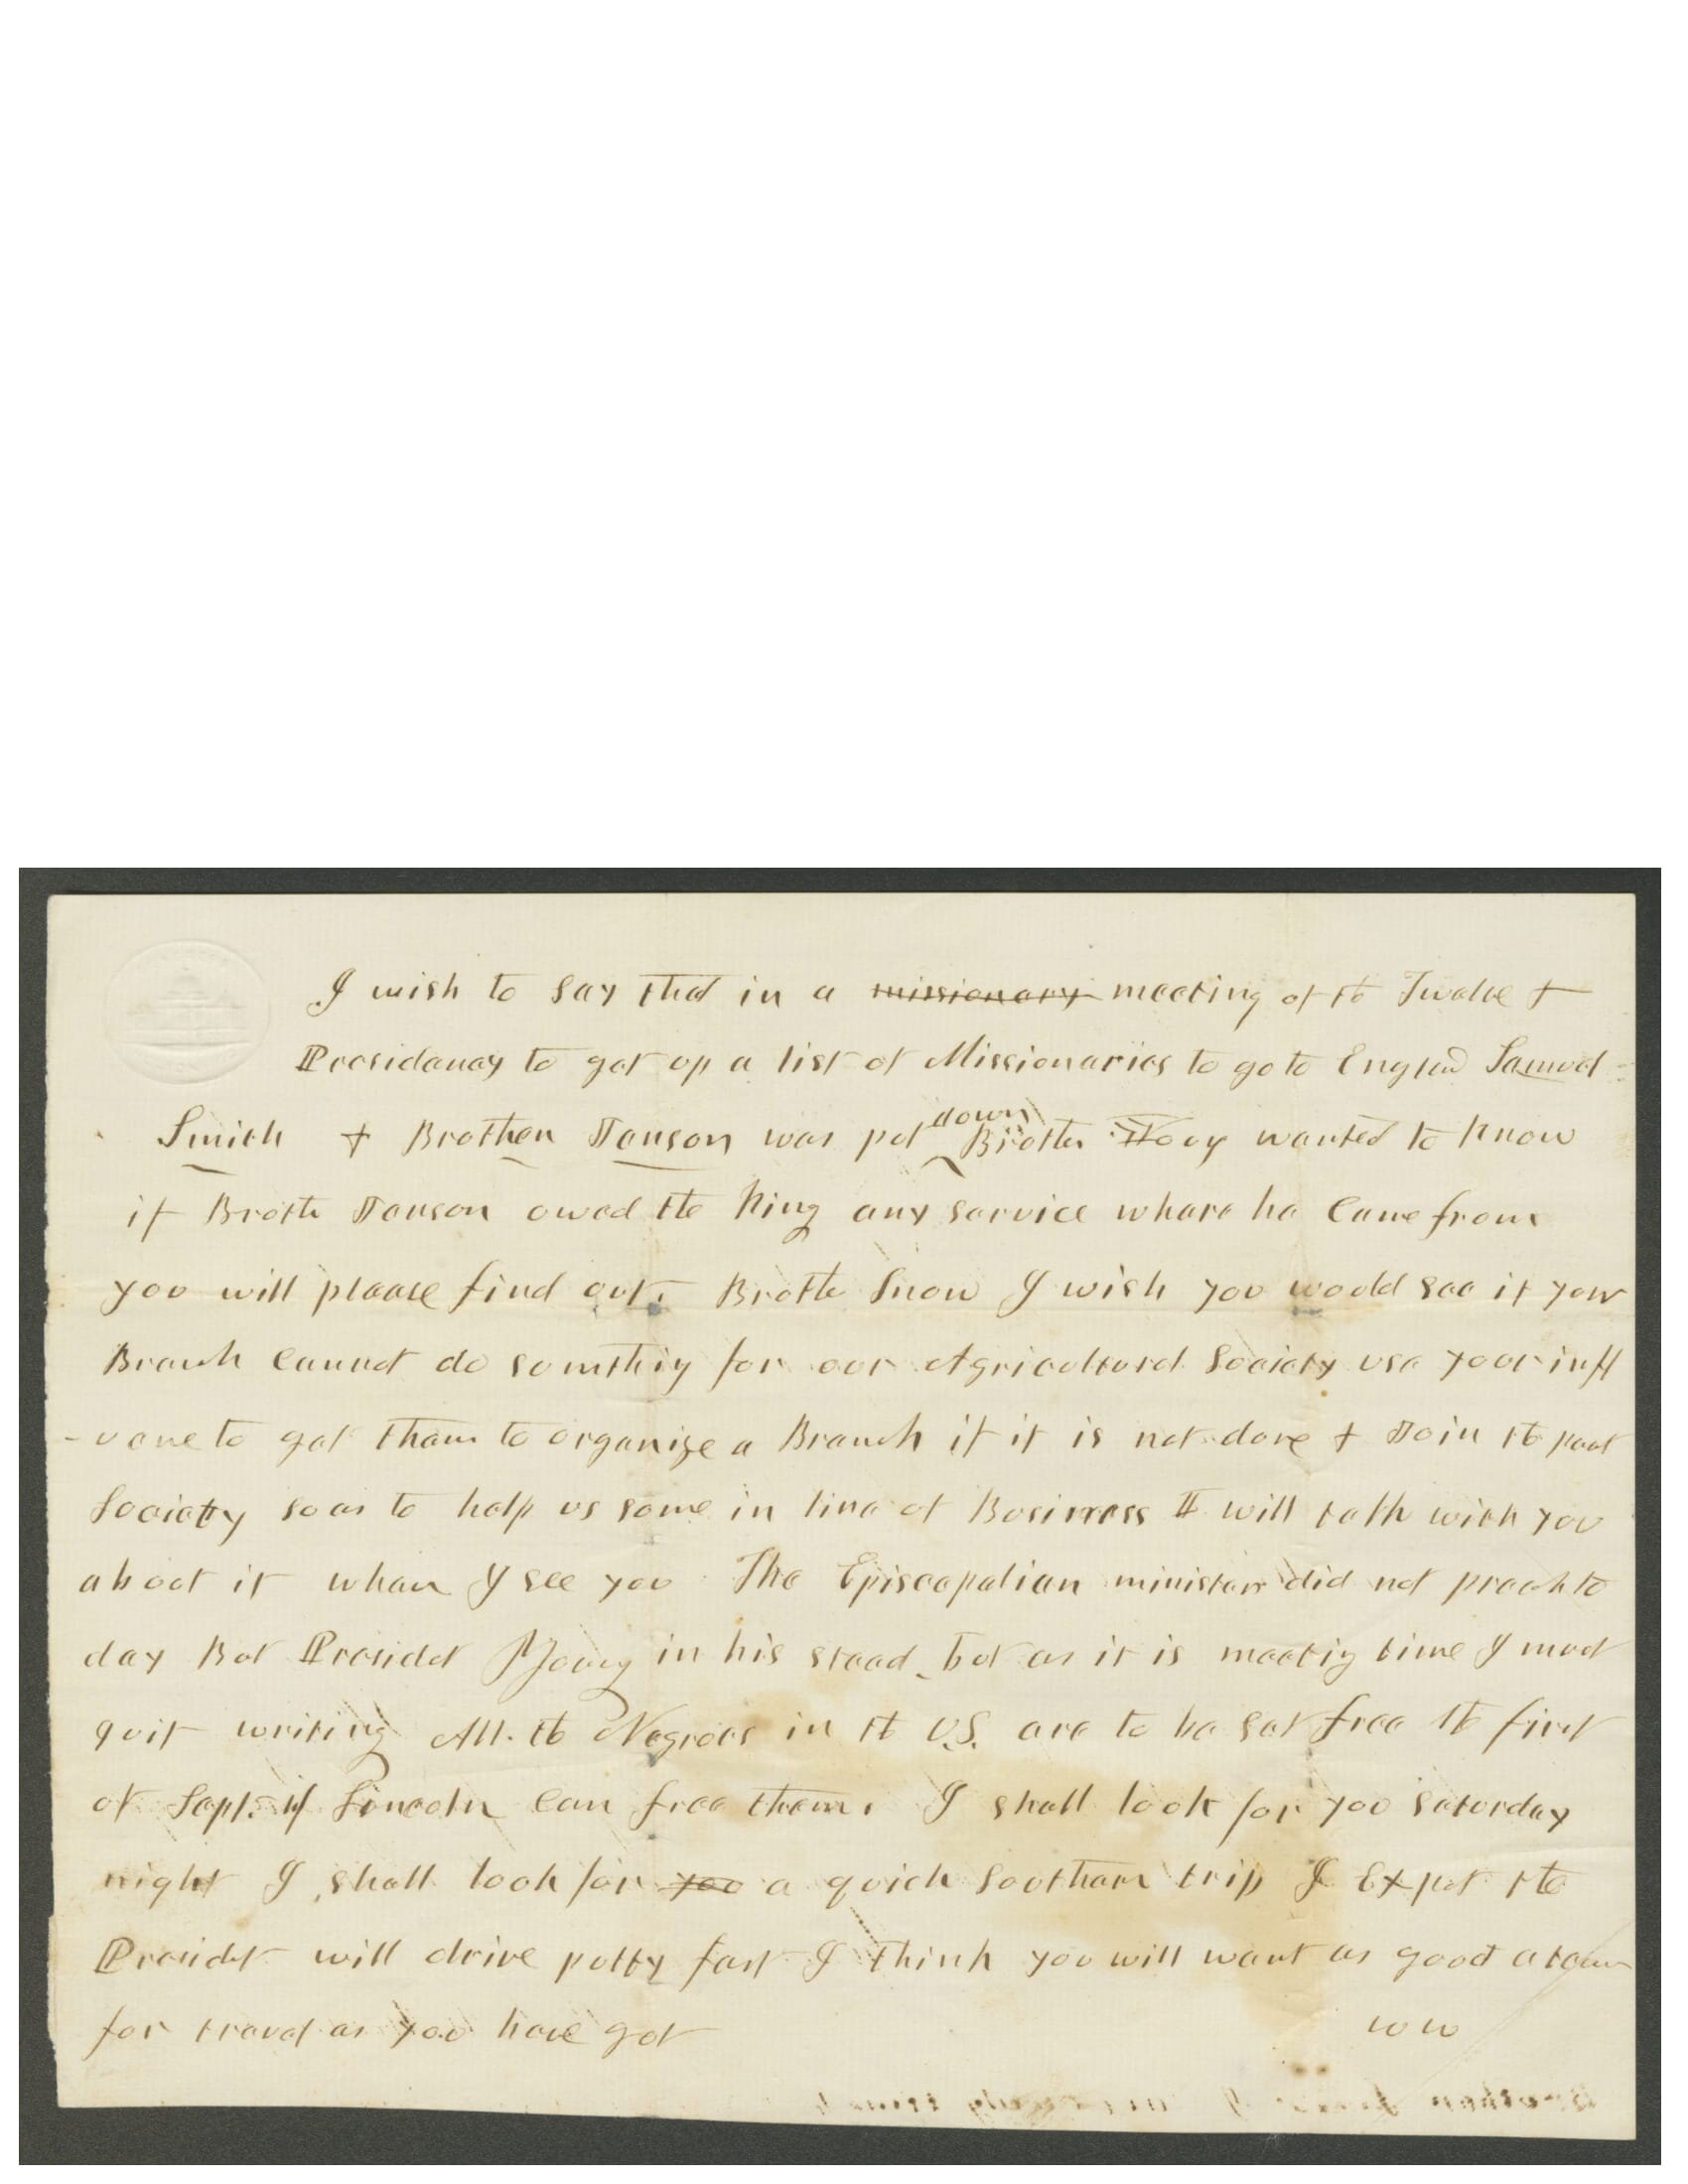 I wish to say that in a missionary meeting of the Twelve &
Presidency to get up a list of Missionaries to go to England Samuel
Smith & Brother Jonson was put down Brother wanted to know
if Brothe Jonson owed the King any service whare he came from
you will please find out. Brothe Snow I wish you would see if your
Branch cannot do somthig for our Agricultural Society use your infl
-uence to get them to organize a Branch if it is not done & Join the
Society so as to help us some in line of Business I will talk with you
about it when I see you The Episcopalian minister did not preach to
day But Presidet Young in his stead, but as it is meetig time I must
quit writing All the Negroes in the U.S. are to be set free the first
of Sept. if Lincoln can free them. I shall look for you saturday
night I shall look for you a quick Southern trip I Expet the
Presidet will drive petty fast I think you will want as good a team
for travel as you have got
W W